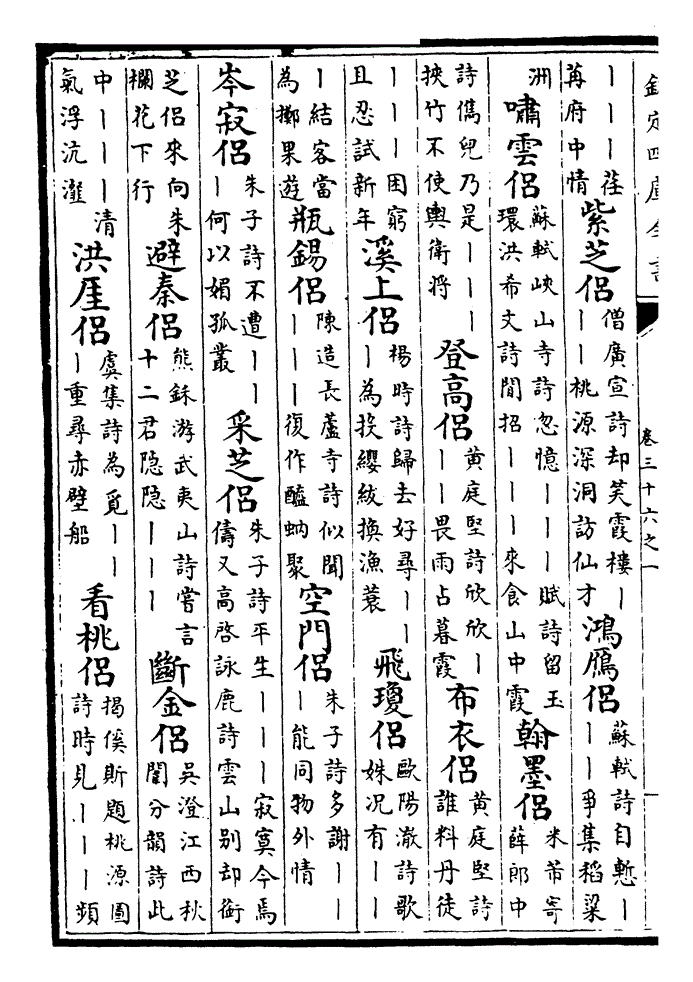 欽定四庫全書 卷三十六之一
｜｜｜荏苒府中情 紫芝侶 僧廣宣詩却笑霞樓｜｜｜桃源深洞訪仙才 鴻鴈侶 蘇軾詩自慙｜｜｜爭集稻粱
洲 嘯雲侶 蘇軾峽山寺詩忽憶｜｜｜賦詩留玉環洪希文詩閒招｜｜｜來食山中霞 翰墨侶 米芾寄薛郎中
詩儁兒乃是｜｜｜挾竹不使輿衛將 登高侶 黄庭堅詩欣欣｜｜｜畏雨占暮霞 布衣侶 黄庭堅詩誰料丹徒
｜｜｜困窮且忍試新年 溪上侶 楊時詩歸去好尋｜｜｜為投纓紱換漁蓑 飛瓊侶 歐陽澈詩歌姝况有｜｜
｜結客當為擲果遊 瓶錫侶 陳造長蘆寺詩似聞｜｜｜復作醯蚋聚 空門侶 朱子詩多謝｜｜｜能同物外情
岑寂侶 朱子詩不遭｜｜｜何以媚孤叢 采芝侶 朱子詩平生｜｜｜寂寞今焉儔又高啓詠鹿詩雲山别却銜
芝侶來向朱欄花下行 避秦侶 熊鉌游武夷山詩嘗言十二君隐隐｜｜｜ 斷金侶 吳澄江西秋闈分韻詩此
中｜｜｜清氣浮沆瀣 洪厓侶 虞集詩為覓｜｜｜重尋赤壁船 看桃侶 揭傒斯題桃源圖詩時見｜｜｜頻